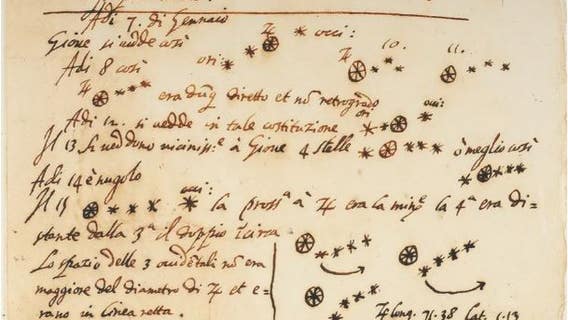 Adi 7. di Gennaio
Gioue si uedde così ori: occi: 10. 11.
Adi 8 così
era dũq diretto et nõ retrogrado
Adi 12. si uedde in tale costituzione ori occi:
Il 13 si ueddono uicinissᵉ à Gioue 4 stelle ò meglio così
Adi 14 è nugolo
Il 15 occi: la prossᵃ à ♃ era la minᵉ la 4ᵃ era di-
stante dalla 3ᵃ il doppio circa
Lo spazio delle 3 occidẽtali nõ era
maggiore del diametro di ♃ et e-
rano in linea retta.
♃ long. 71.38 Lat. 1.13